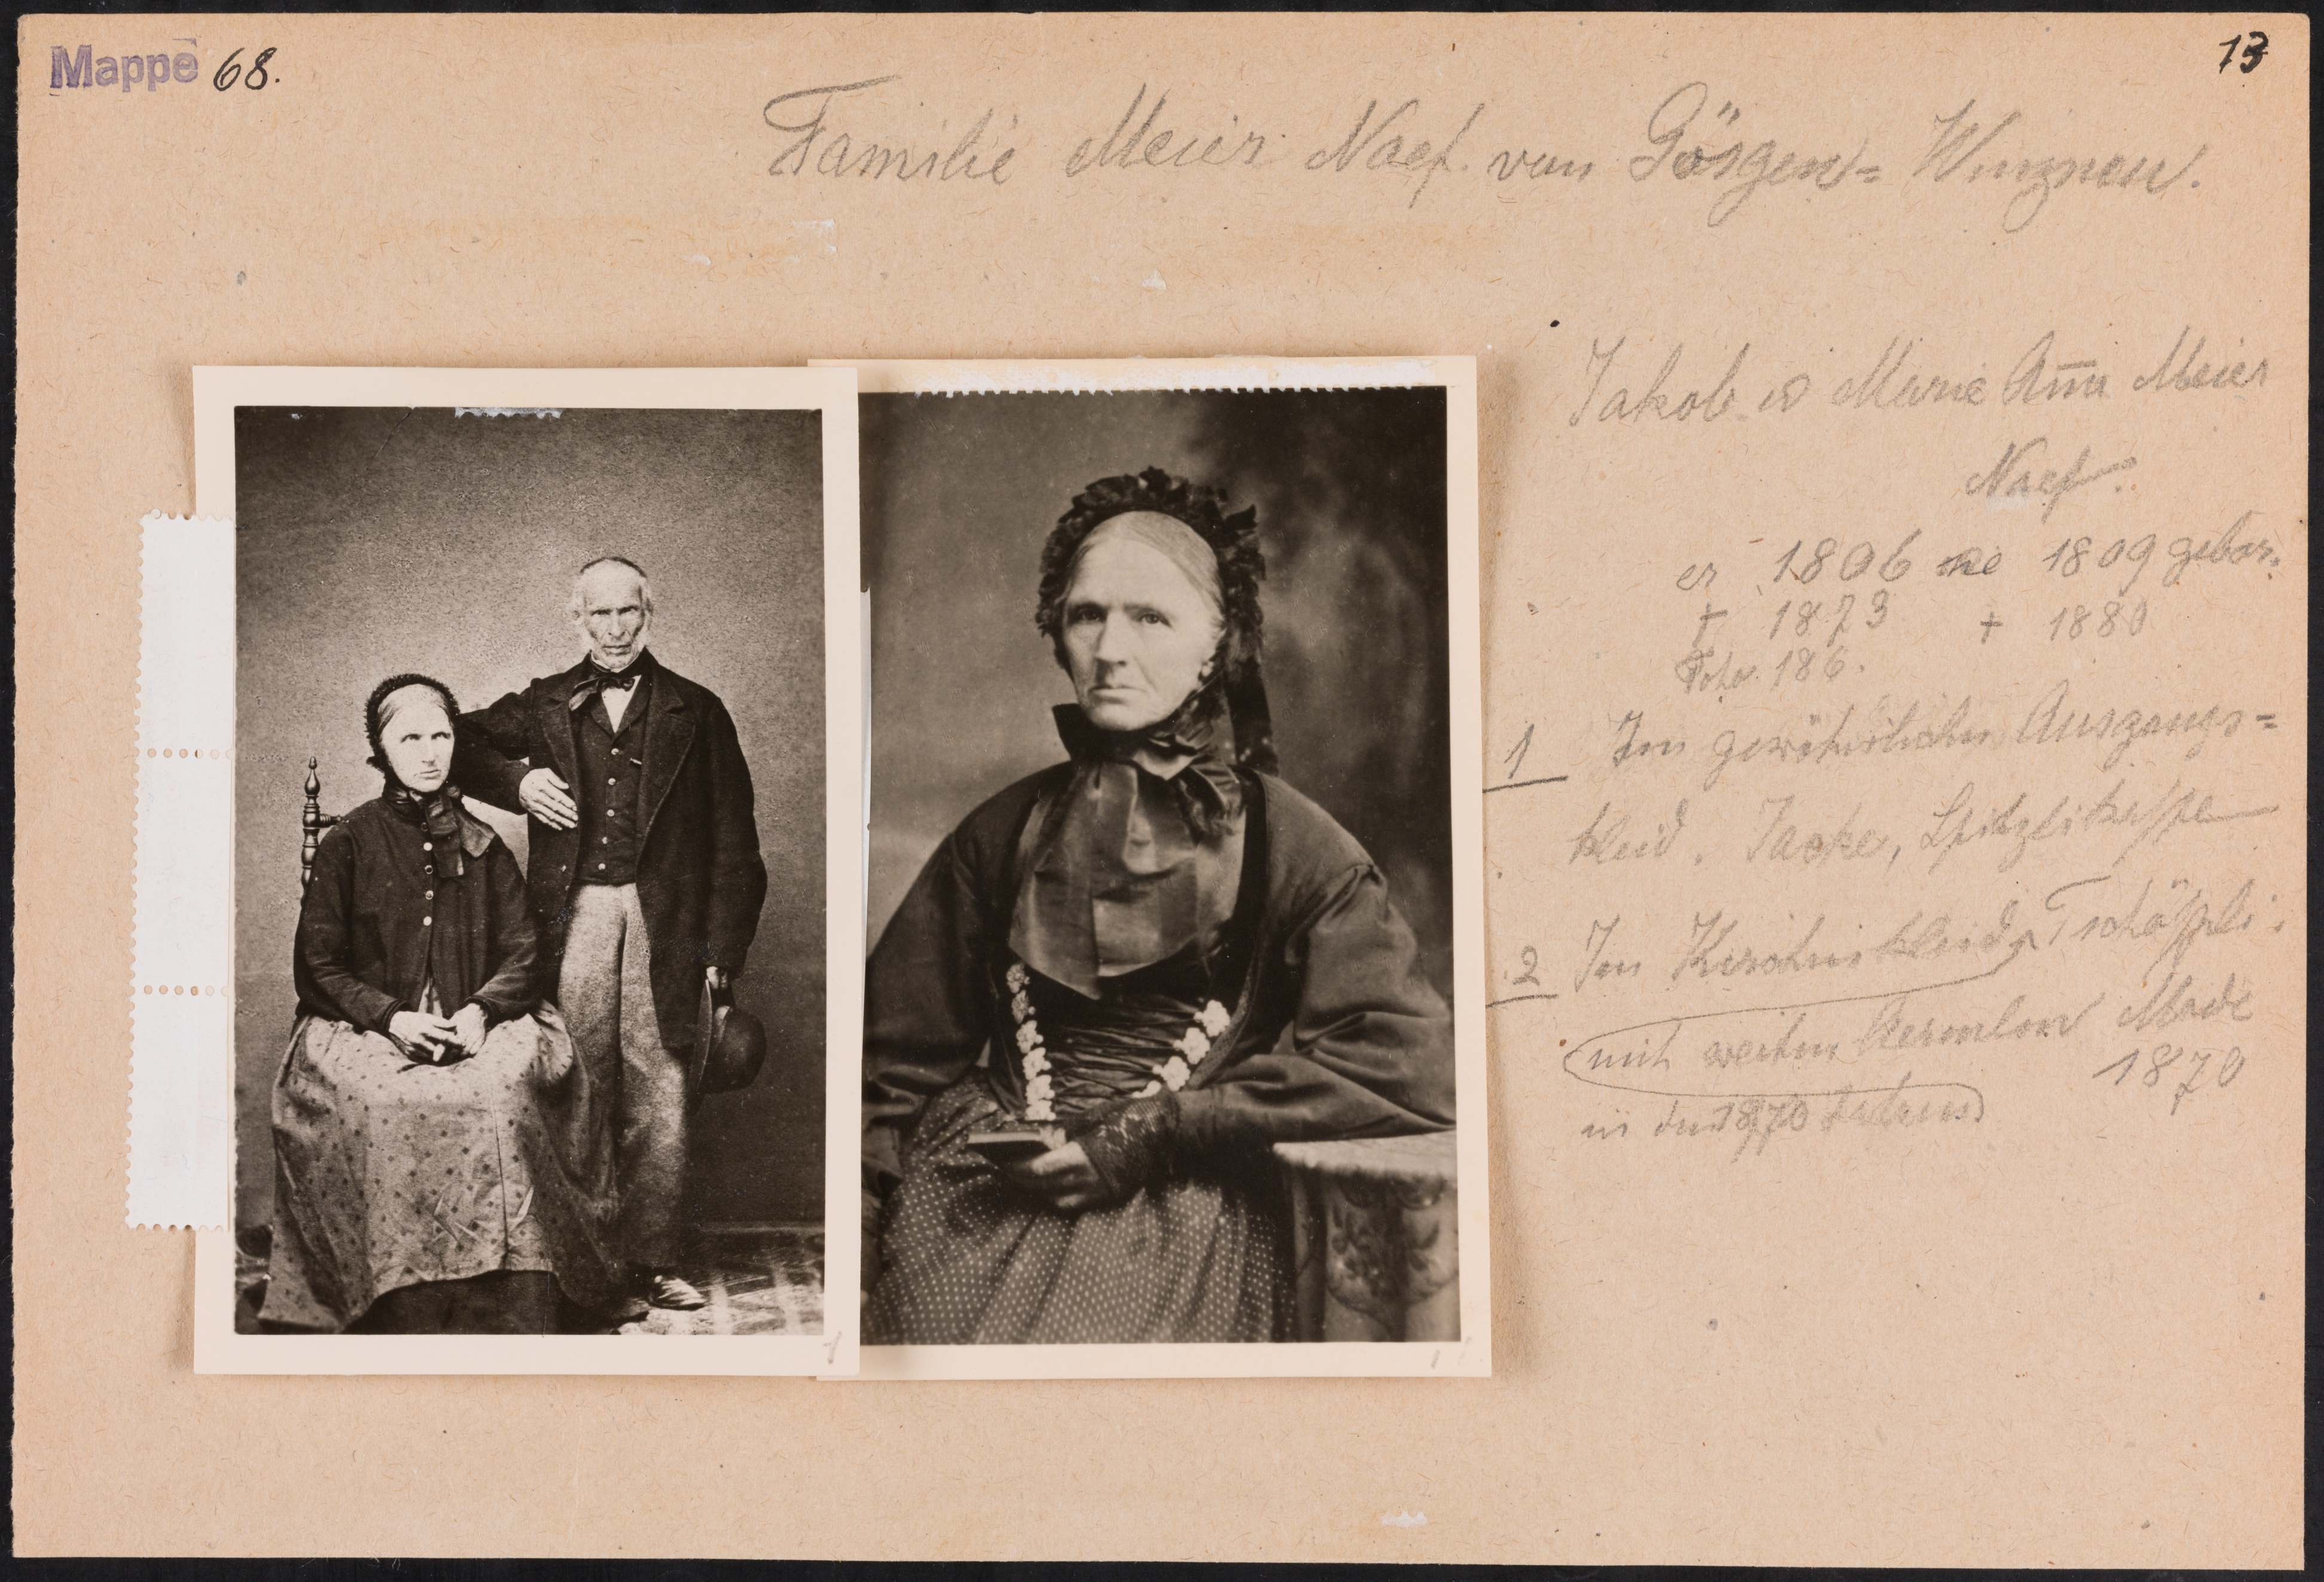 Mappe 68.
13
Familie Meier Naef. von Gösgen= Winznau.
Jakob u Marie Anna Meier
Naef.
er 1806 sie 1809 gebor.
† 1873 † 1880
Foto 186.
1 Im gewöhnlichen Ausgangs=
kleid. Jacke, Spitzlikappe
2 Im Kirchenkleid, Tschöppli.
mit weiten Aermlen Mode
1870
in den 1870
1
1